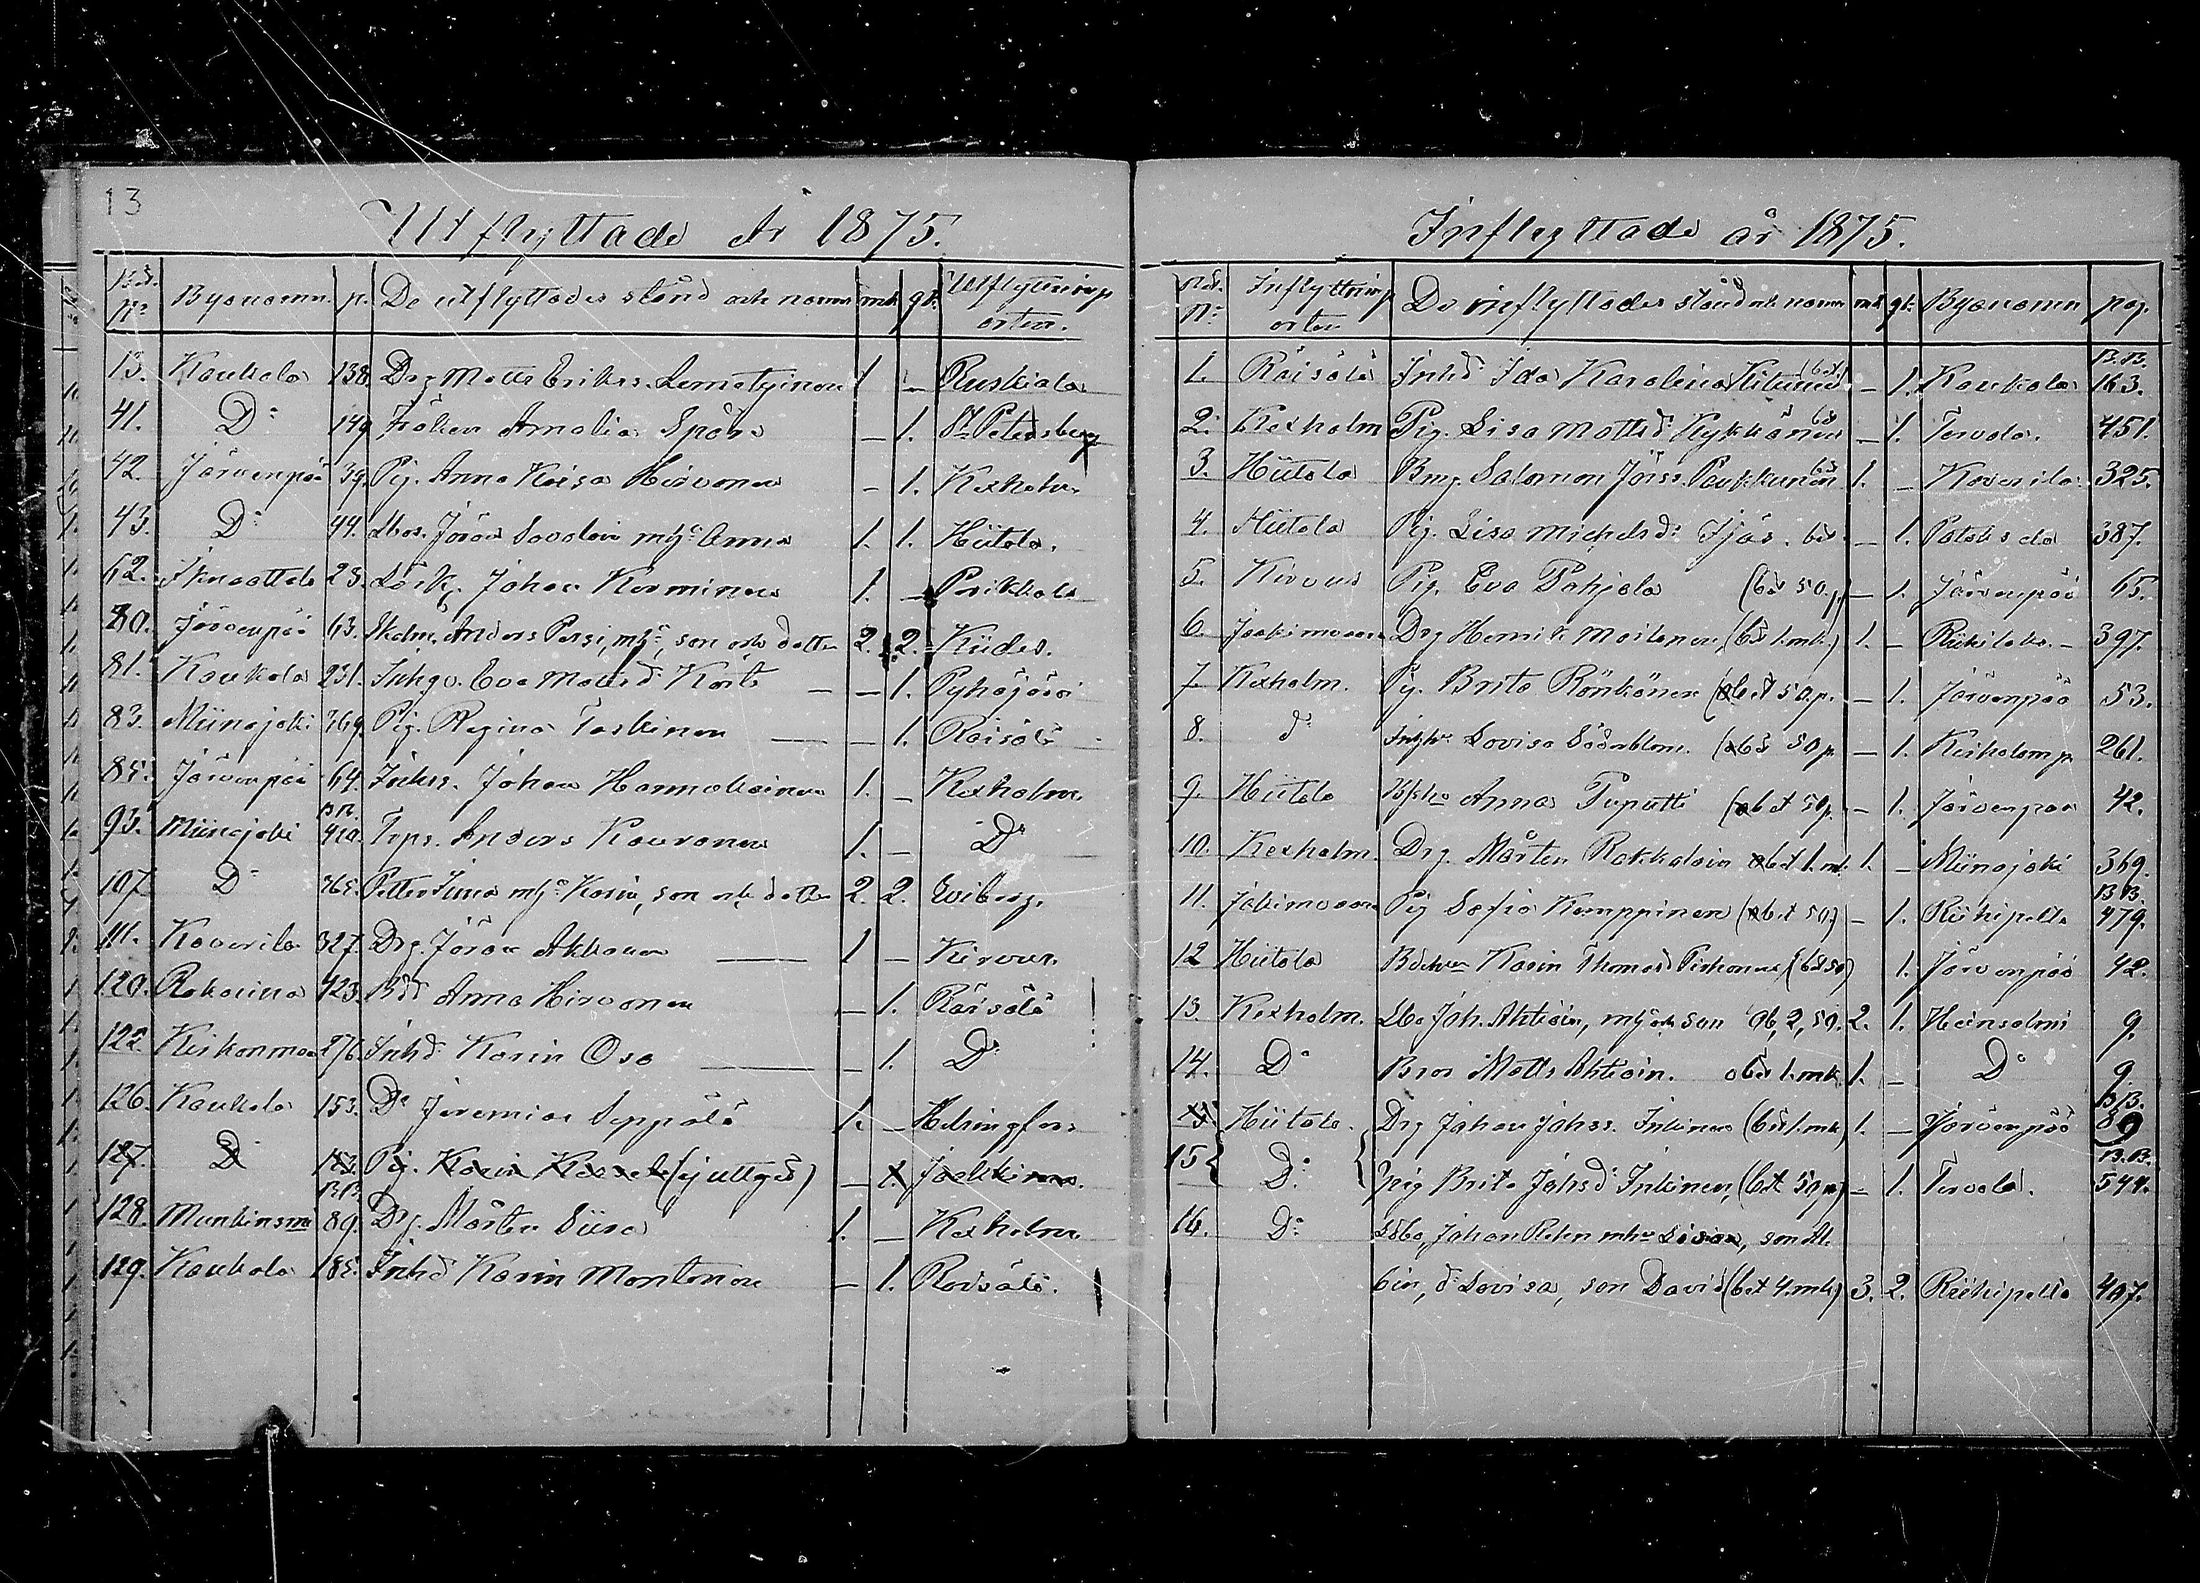 13
Utflyttade År 1875.
Bet. No Byanamn. p. De utflyttades stånd och namn mk. qk. Utflyttnings orten.
13. Kaukola 138. Drg Matts Eriks. Lemetyinen 1 — Ruskiala
41. Do 149 Fröken Amalia Spåre — 1. St Petersburg
42. Järvenpää 39. Pig. Anna Kaisa Hirvonen — 1. Kexholm
43. Do 44. Lbos. Jöran Savolain mhu Anna 1. 1. Hiitola.
62. 23. Johan Korminen 1. — Parikkala
80. Järvenpää 63. Anders Persi, mhu, son och dotter 2. 2. Kides.
81. Kaukola 231. Inhqv. Eva Mattsd. — — 1. Pyhäjärvi
83. Miinajoki 369. Pig. Regina Taskinen — — 1. Räisälä
85. Järvenpää 64. Inhs. Johan Hannukainen 1. — Kexholm.
93. Miinajoki B.B. 410. Anders Kauranen 1. — Do
107 Do 365. Petter mhu Karin, son och dotter 2. 2. Wiborg.
111. Kaverila 327. Drg. Jöran Akkanen — 1 — Kirvus.
120. Rakarina 423. Anna Hirvonen — 1. Räisälä
122 276. Inhd. Karin Osa — — 1. Do
126. Kaukola 153. Do Jeremias Seppälä 1. — Helsingfors
127. Do 153. Pig. Karin (ej uttged) — 1. Jaakkima.
128. B.B. 89. Drg. Mårten Siira 1. — Kexholm
129. Kaukola 185. Inhd Karin Montonen — 1. Räisälä.
Inflyttade år 1875.
Bet. No Inflyttnings orten De inflyttades stånd och namn mk qk. Byanamn pag.
1. Räisälä Inhd. Ida Karolina Hitunen bet — 1. Kaukola B.B. 163.
2. Kexholm Pig. Lisa Mattsd. Kykkänen bet — 1. Tervola. 451.
3. Hiitola Salomon Jörss. Paukkunen bet 1. — Kaverila 325.
4. Hiitola Pig. Lisa Michelsd. Ijäs. bet — 1. 387.
5. Kirvus Pig. Eva Pohjola (bet 50 p) — 1. Järvenpää 65.
6. Jaakimvaara Drg Henrik Moilanen, (bet 1. mk.) 1. — 397.
7 Kexholm. Pig. Brita Rönkönen (bet 50 p. — 1. Järvenpää 53.
8. do Lovisa Söderblom. (bet 50 p — 1. 261.
9. Hiitola Anna Puputti (bet 50 p. — 1. Järvenpää 42.
10. Kexholm. Drg. Mårten Rokkalain bet 1. mk 1. — Miinajoki 369.
11. Jakimvaara Pig Sofia Kemppinen (bet 50) — 1. Riihipelto B.B. 479.
12 Hiitola Karin Thomasd (bet 50) 1. Järvenpää 42.
13. Kexholm. Lbo Joh. Ahtiain, mhu och son 2, 50. 2. 1. Heinsalmi 9.
14. Do Bror Matts Ahtiain. bet 1. mk 1. — Do 9.
15 Hiitola. Drg Johan Johss. Inkinen (bet 1. mk) 1. — Järvenpää B.B. 89
15 { Do. { Pig Brita Johsd. Inkinen, (bet 50 p) — 1. Tervola. B.B. 544.
16. Do Lsbo, Johan mhu Lisa, son Al-
bin, d. Lovisa, son David (bet 4. mk) 3. 2. Riihipelto 497.